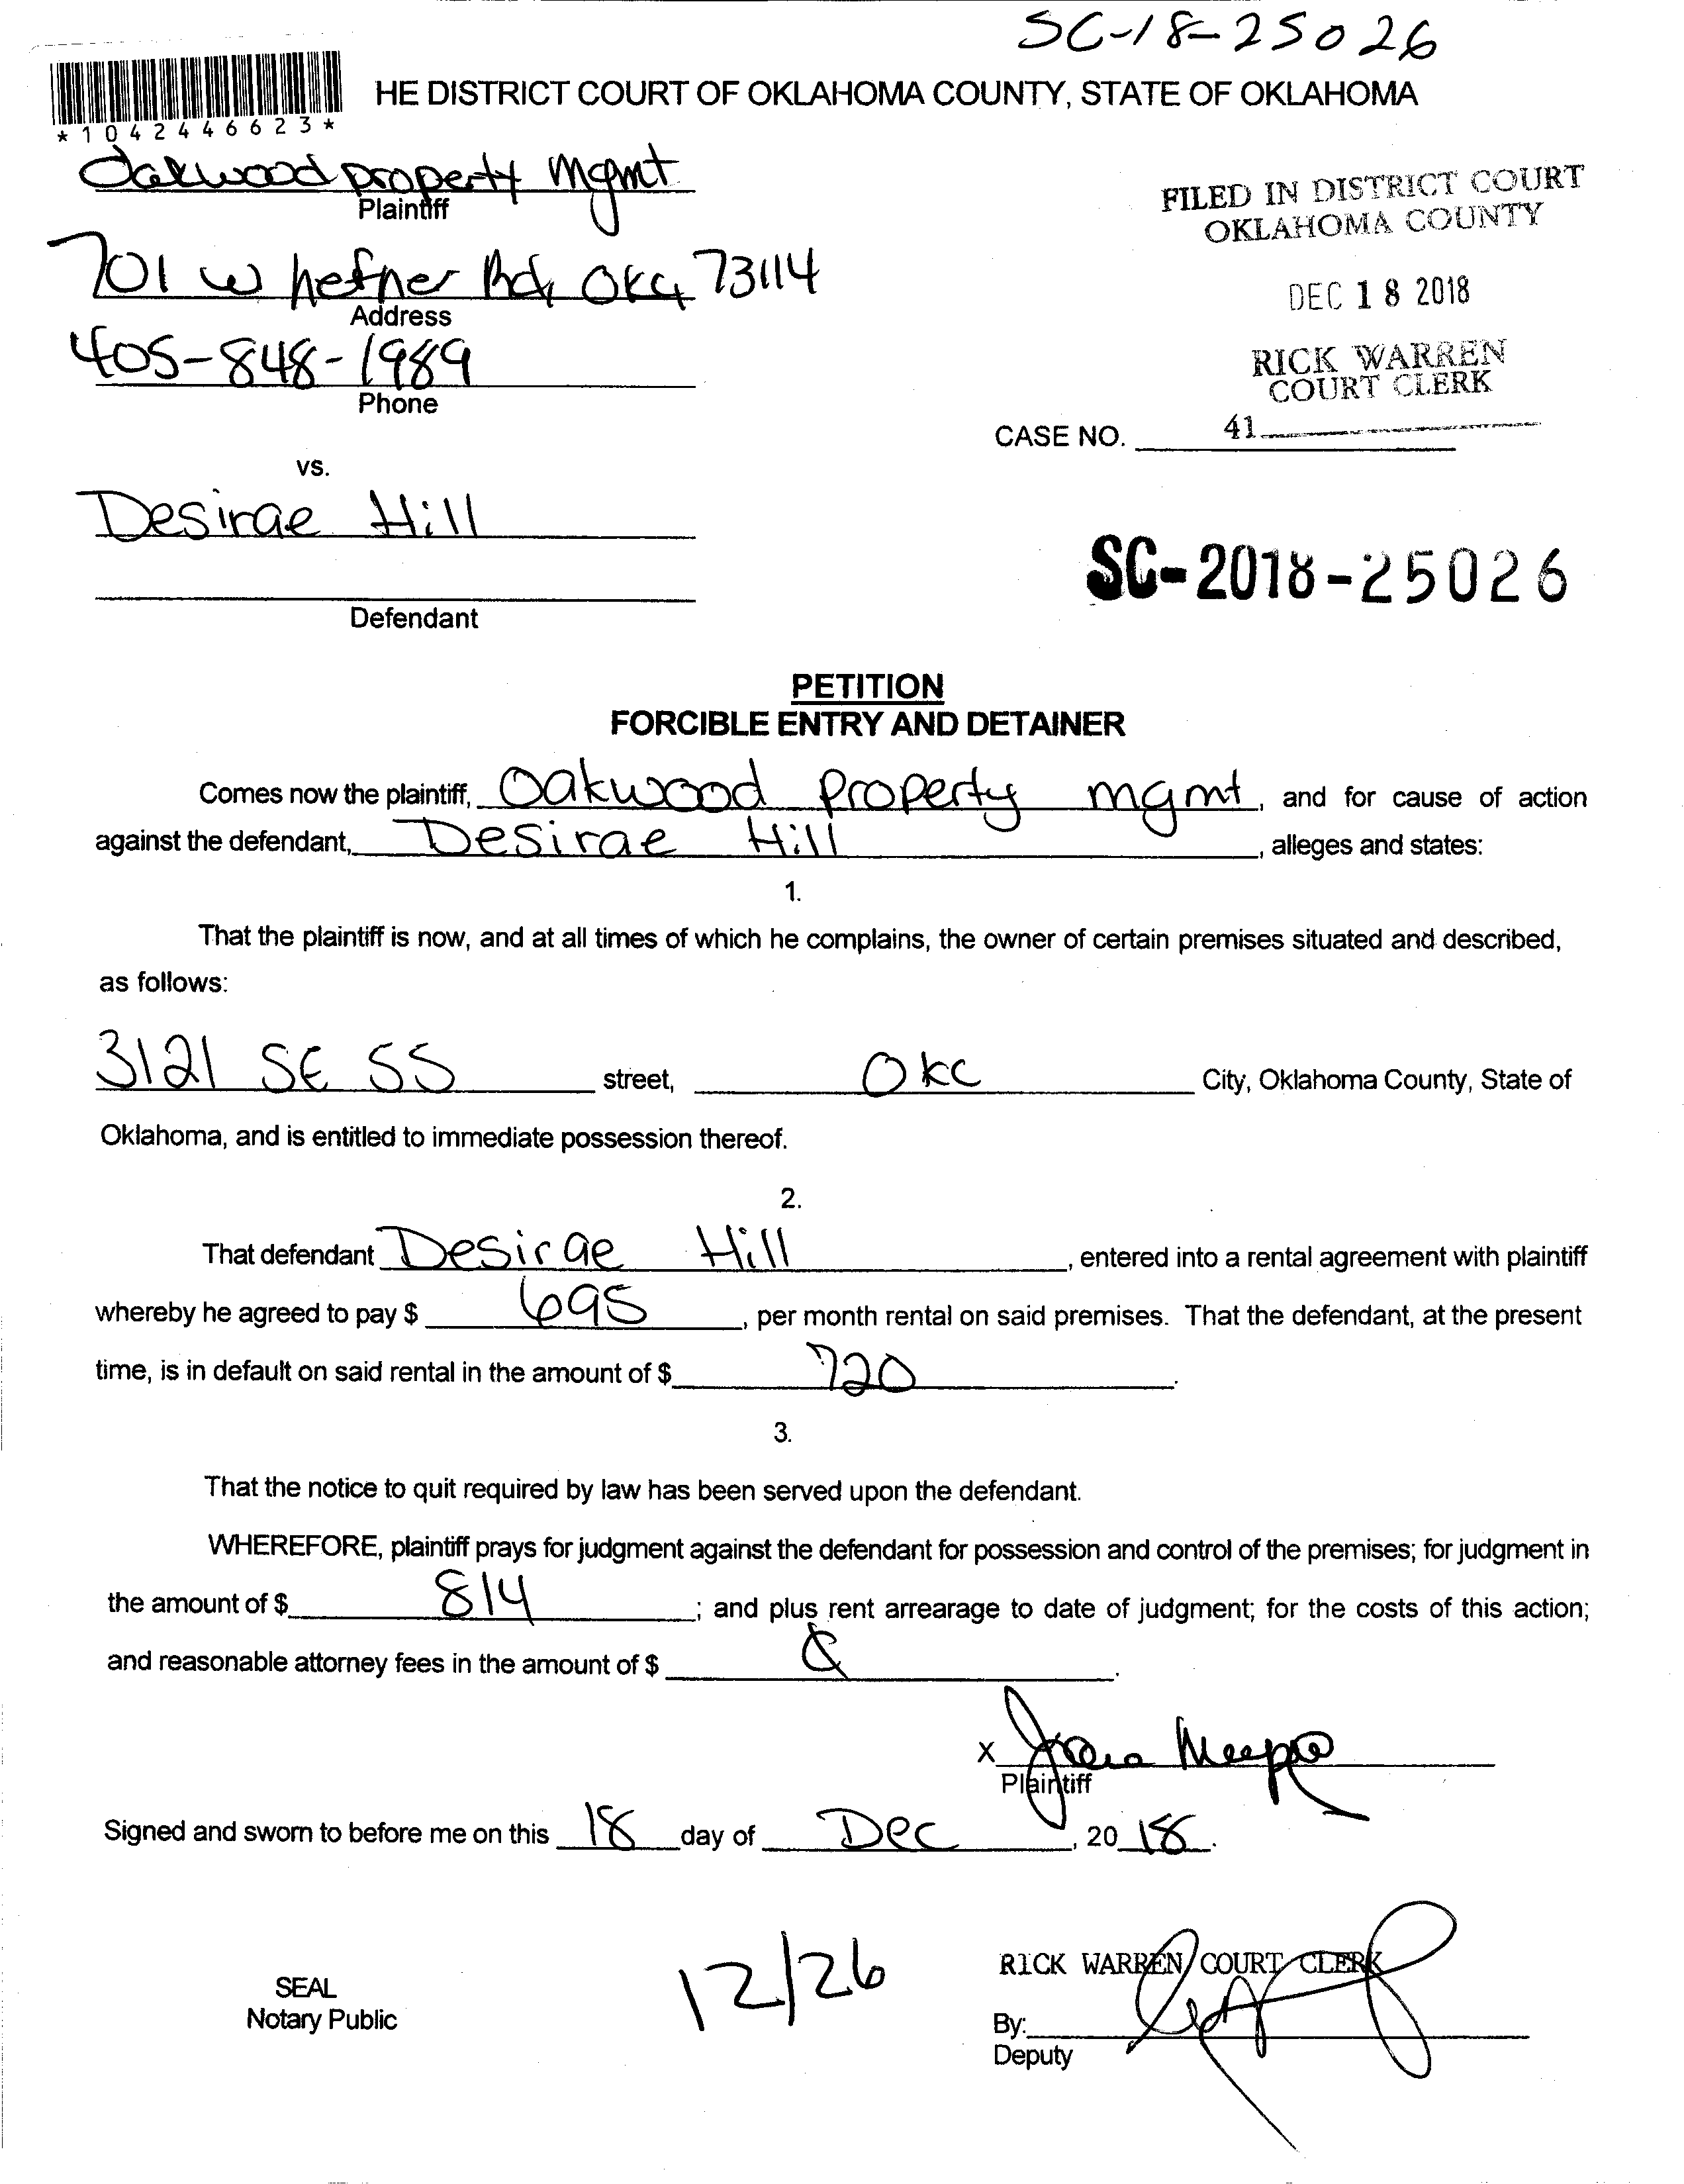 SC-18-25026
HE DISTRICT COURT OF OKLAHOMA COUNTY, STATE OF OKLAHOMA
*1042446623*
Oakwood property Mgmt
Plaintiff
701 W hefner Rd, OKC, 73114
Address
405-848-1989
Phone
FILED IN DISTRICT COURT
OKLAHOMA COUNTY
DEC 18 2018
RICK WARREN
COURT CLERK
41
CASE NO.
vs.
Desirae Hill
Defendant
SC-2018-25026
PETITION
FORCIBLE ENTRY AND DETAINER
Comes now the plaintiff, Oakwood property mgmt, and for cause of action
against the defendant, Desirae Hill, alleges and states:
1.
That the plaintiff is now, and at all times of which he complains, the owner of certain premises situated and described,
as follows:
3121 SE 55 street, OKC City, Oklahoma County, State of
Oklahoma, and is entitled to immediate possession thereof.
2.
That defendant Desirae Hill, entered into a rental agreement with plaintiff
whereby he agreed to pay $ 695, per month rental on said premises. That the defendant, at the present
time, is in default on said rental in the amount of $ 720.
3.
That the notice to quit required by law has been served upon the defendant.
WHEREFORE, plaintiff prays for judgment against the defendant for possession and control of the premises; for judgment in
the amount of $ 814; and plus rent arrearage to date of judgment; for the costs of this action;
and reasonable attorney fees in the amount of $ .
X
Plaintiff
Signed and sworn to before me on this 18 day of Dec, 20 18.
SEAL
Notary Public
12/26
RICK WARREN COURT CLERK
By:
Deputy